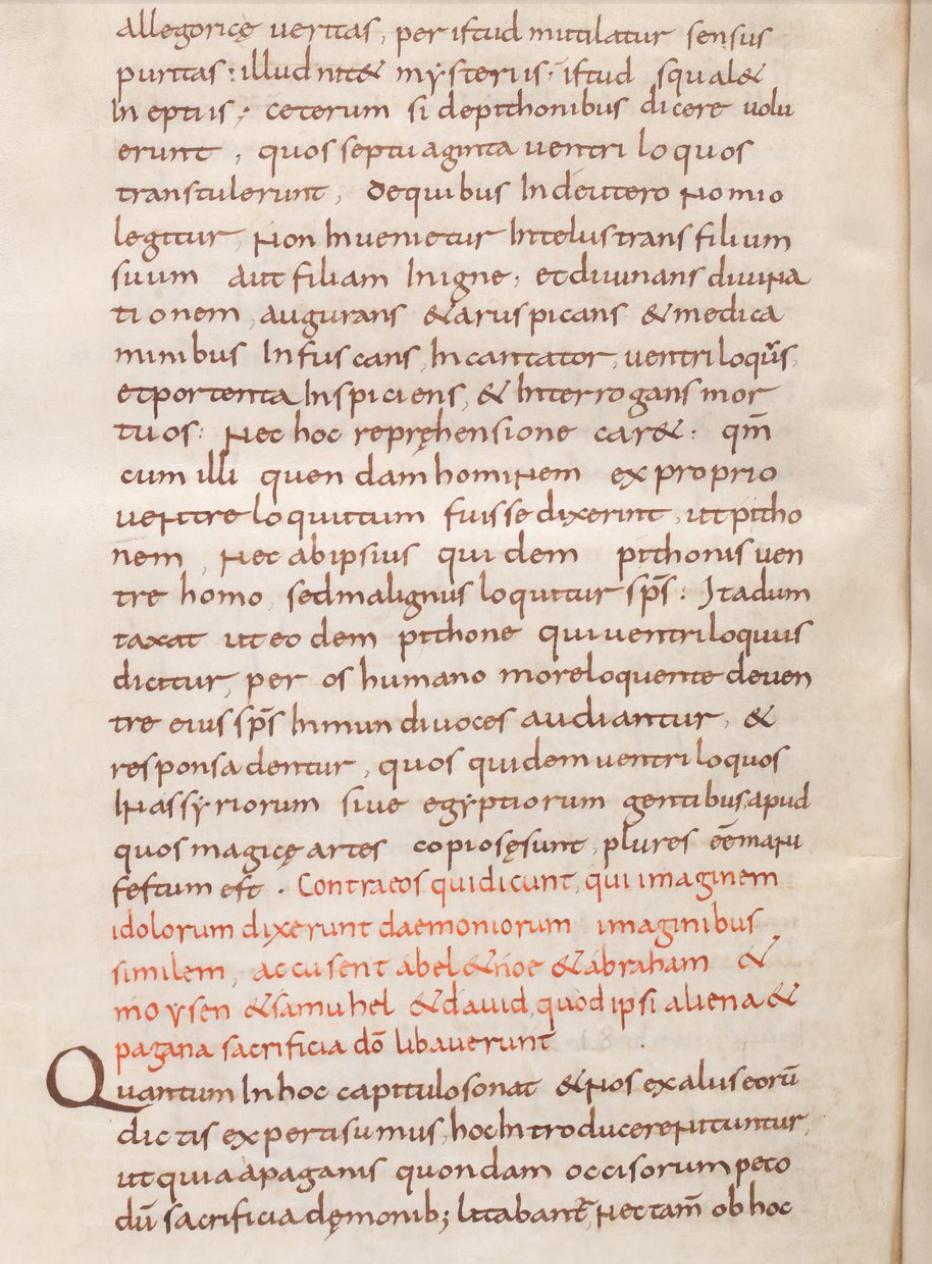 allegoricę veritas, per istud mutilatur sensus
puritas: illud nit& mysteriis· istud squal&
Ineptiis; ceterum si depithonibus dicere volu
erunt, quos septuaginta ventriloquos
transtulerunt, dequibus Indeuteronomio
legitur, Non Invenietur Intelustrans filium
suum aut filiam Inigne, etdivinans divina
tionem, augurans &aruspicans &medica
minibus Infuscans, Incantator, ventriloqus,
etportenta Inspiciens, & Interrogans mor
tuos: Nec hoc repręhensione car&: qm̄
cum illi quendam hominem exproprio
ventreloquutum fuisse dixerint, utpitho
nem, Nec abipsius quidem pithonis ven
tre homo, sedmalignus loquitur sp̄s: Itadum
taxat uteodem pithone quiventriloquus
dicitur, per os humano moreloquente deven
tre eius sp̄s Inmundi voces audiantur, &
responsa dentur, quos quidem ventriloquos
Inassyriorum sive egyptiorum gentibus, apud
quos magicę artes copiosęsunt, plures eēmani
festum est. Contraeos quidicunt, qui imaginem
idolorum dixerunt daemoniorum imaginibus
similem, accusent abel &noe &abraham &
moysen &samuhel &david, quod ipsi aliena &
pagana sacrificia dō libaverunt
Quantum Inhoc capitulosonat &Nos exaliis eorū
dictis expertisumus, hocIntroducerenituntur,
utquiaapaganis quondam occisorumpeco
dū sacrificia dęmonib; litabant̄, Nectam̄ obhoc